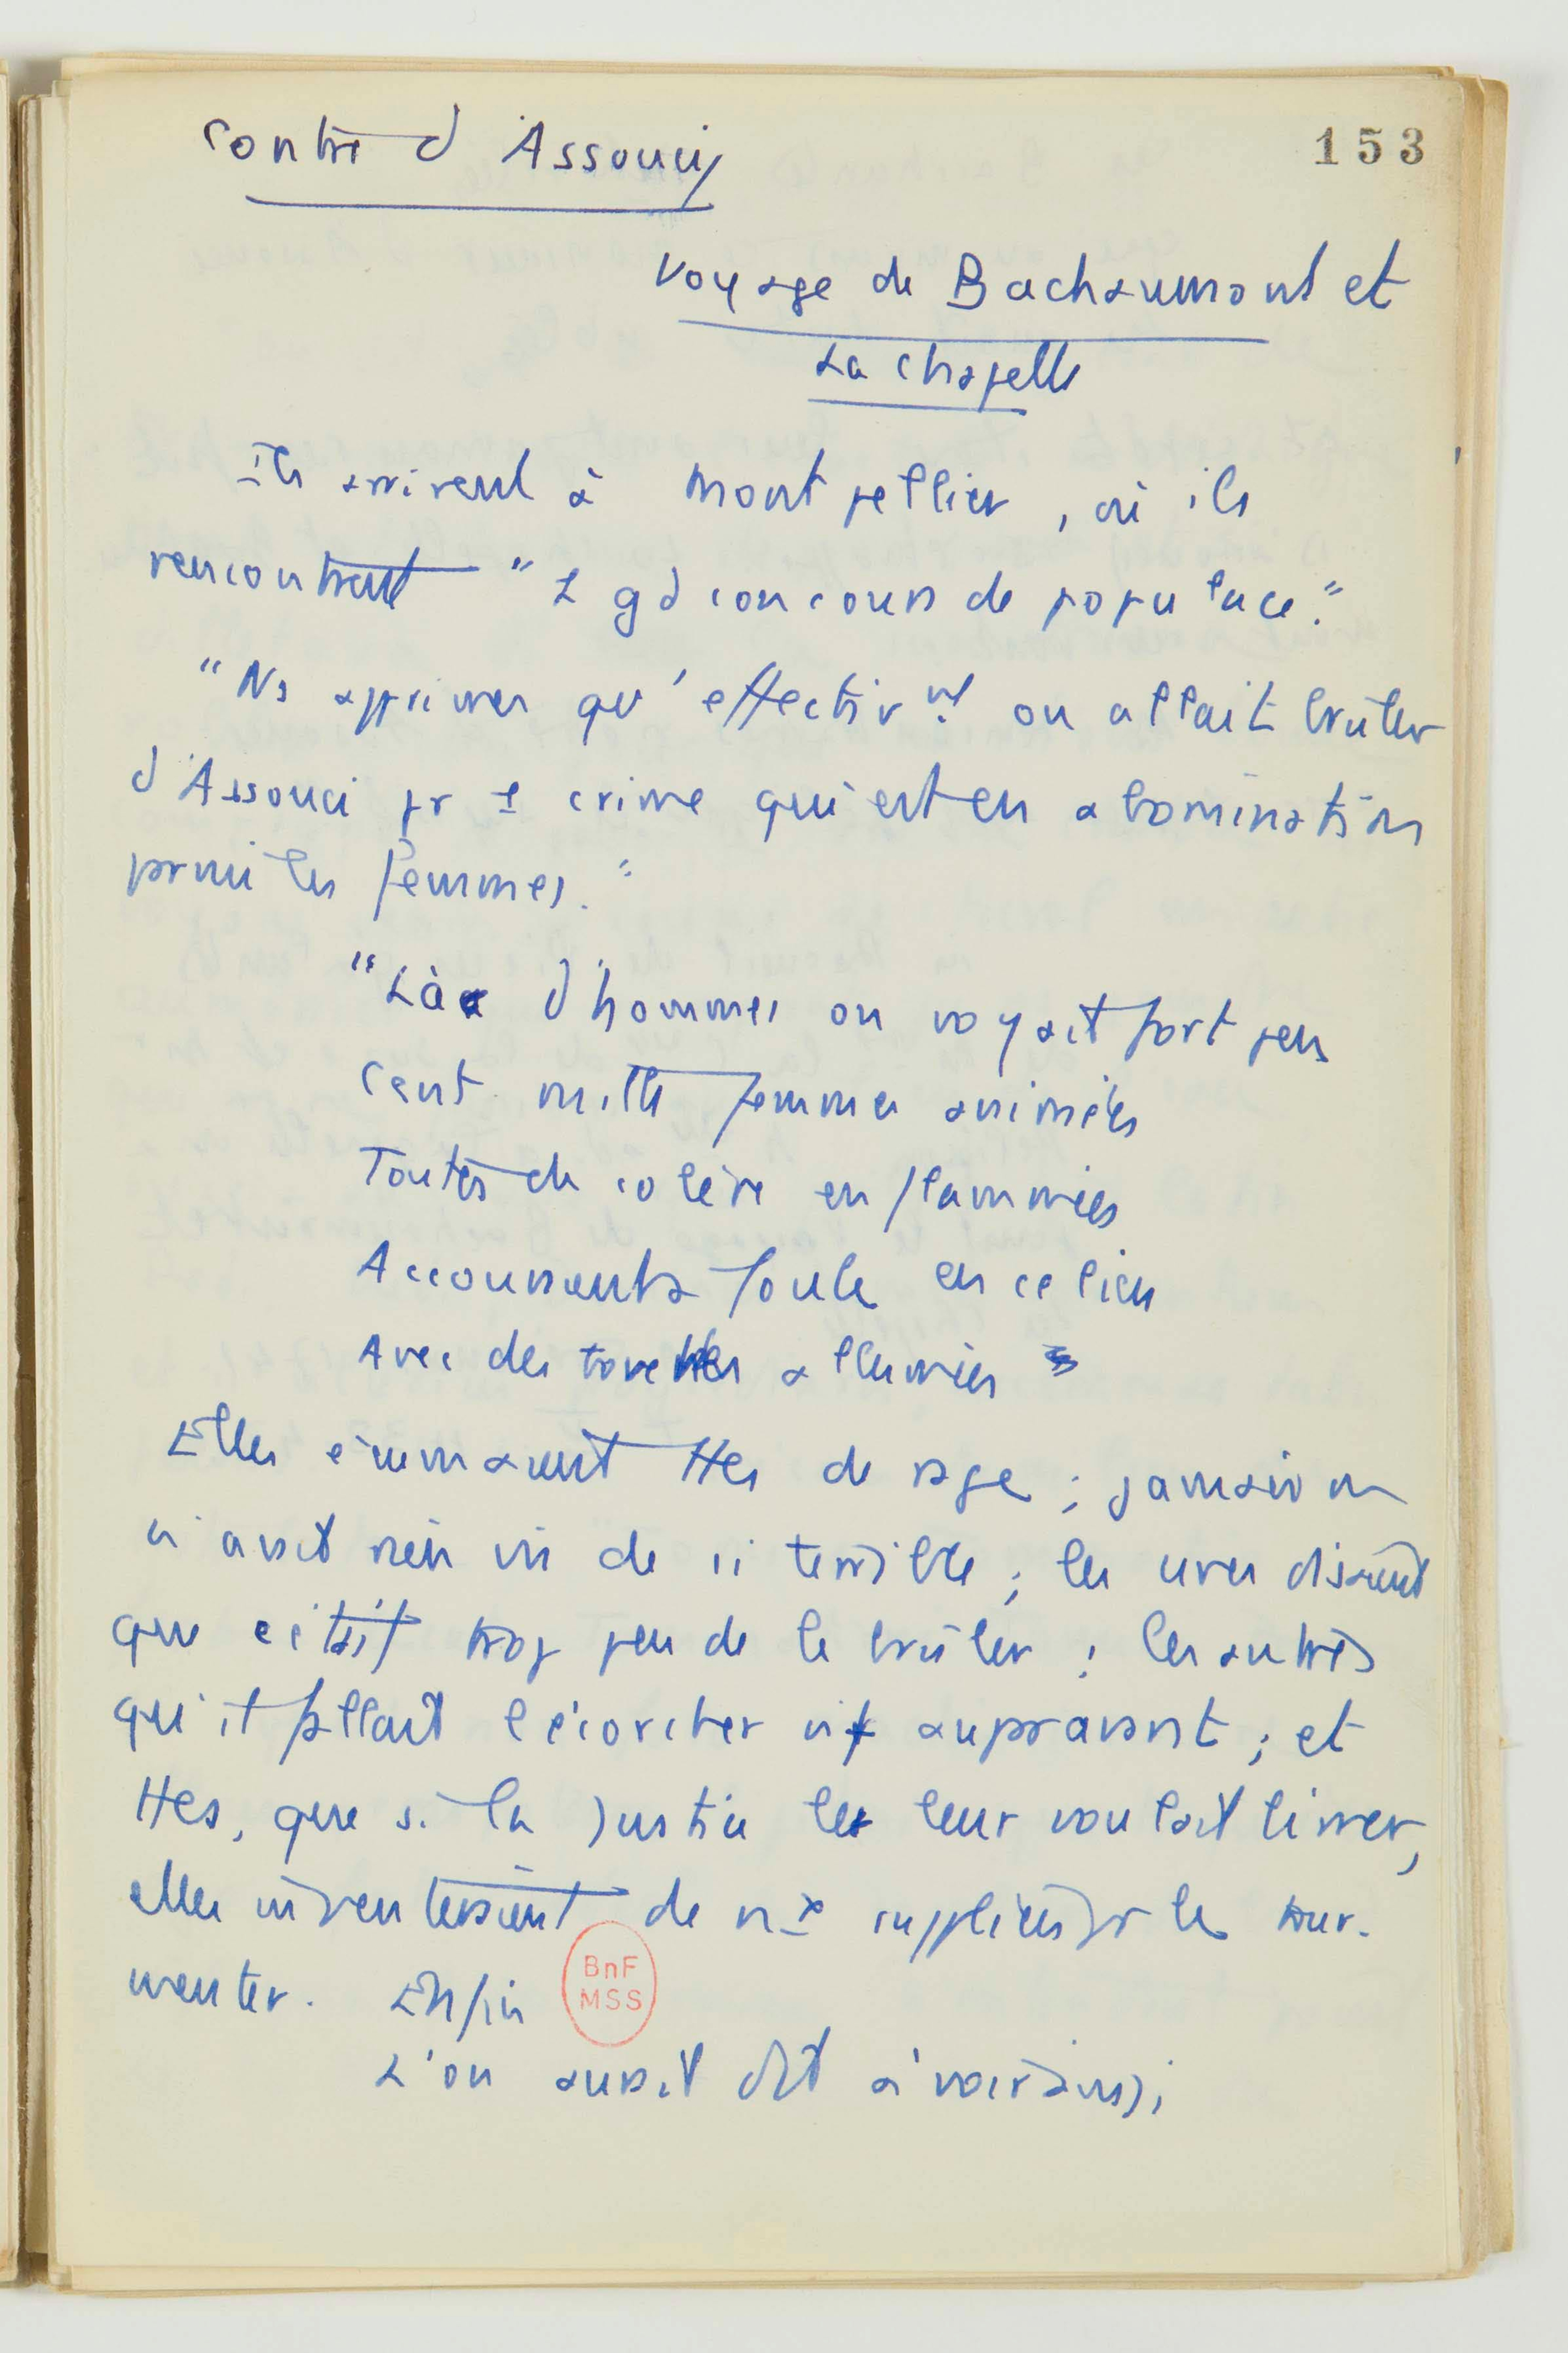 Contre d'Assoucy
153
Voyage de Bachaumont et
La Chapelle
Ils arrivent à Montpellier, où ils
rencontrent "1 gd concours de populace."
"Ns apprimes qu'effectivnt on allait brûler
d'Assouci pr 1 crime qui est en abomination
parmi les femmes."
"Là d'hommes on voyait fort peu
Cent mille femmes animées
Toutes de colère enflammées
Accouraient à foule en ce lieu
Avec des torches allumées
Elles écumaient ttes de rage ; jamais on
n'avait rien vu de si terrible ; les unes disaient
que c'était trop peu de le brûler ; les autres
qu'il fallait l'écorcher vif auparavant ; et
ttes, que si la Justice le leur voulait livrer,
elles inventeraient de nx supplices pr le tour-
menter. Enfin
BnF
MSS
L'on aurait dit à voir ainsi